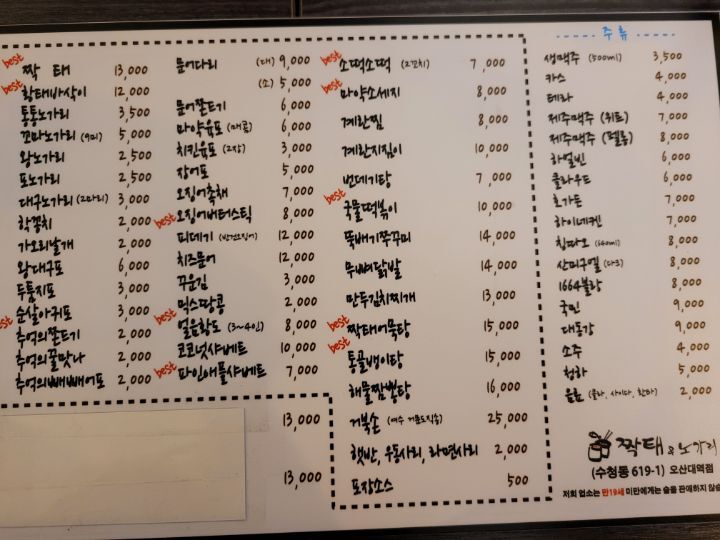 best 짝태 13,000
best 황태바사삭이 12,000
통통노가리 3,500
꼬마노가리 (9미) 5,000
왕노가리 2,500
포노가리 2,500
대구노가리 (2마리) 3,000
학꽁치 2,000
가오리날개 2,000
왕대구포 6,000
두툼지포 3,000
best 순살아귀포 3,000
추억의쫀드기 2,000
추억의꿀맛나 2,000
추억의빼빼어포 2,000
문어다리 (대) 9,000
(소) 5,000
문어쫀드기 6,000
마약육포 (매콤) 6,000
치킨육포 (2장) 3,000
장어포 5,000
오징어숏채 7,000
best 오징어버터스틱 8,000
피데기 (반건오징어) 12,000
치즈문어 12,000
꾸운김 3,000
best 믹스땅콩 2,000
얼음황도 (3~4인) 8,000
코코넛샤베트 10,000
best 파인애플샤베트 7,000
13,000
13,000
best 소떡소떡 (2꼬치) 7,000
best 마약소세지 8,000
계란찜 8,000
계란지짐이 10,000
번데기탕 7,000
best 국물떡볶이 10,000
뚝배기쭈꾸미 14,000
무뼈닭발 14,000
만두김치찌개 13,000
best 짝태어묵탕 15,000
best 통골뱅이탕 15,000
해물짬뽕탕 16,000
거북손 (여수 거문도직송) 25,000
햇반, 우동사리, 라면사리 2,000
포장소스 500
주류
생맥주 (500ml) 3,500
카스 4,000
테라 4,000
제주맥주 (위트) 7,000
제주맥주 (펠롱) 8,000
하얼빈 6,000
클라우드 6,000
호가든 7,000
하이네켄 7,000
칭따오 (640ml) 8,000
산미구엘 (다크) 8,000
1664블랑 8,000
국민 9,000
대동강 9,000
소주 4,000
청하 5,000
음료 (콜라, 사이다, 환타) 2,000
짝태 & 노가리
(수청동 619-1) 오산대역점
저희 업소는 만19세 미만에게는 술을 판매하지 않습